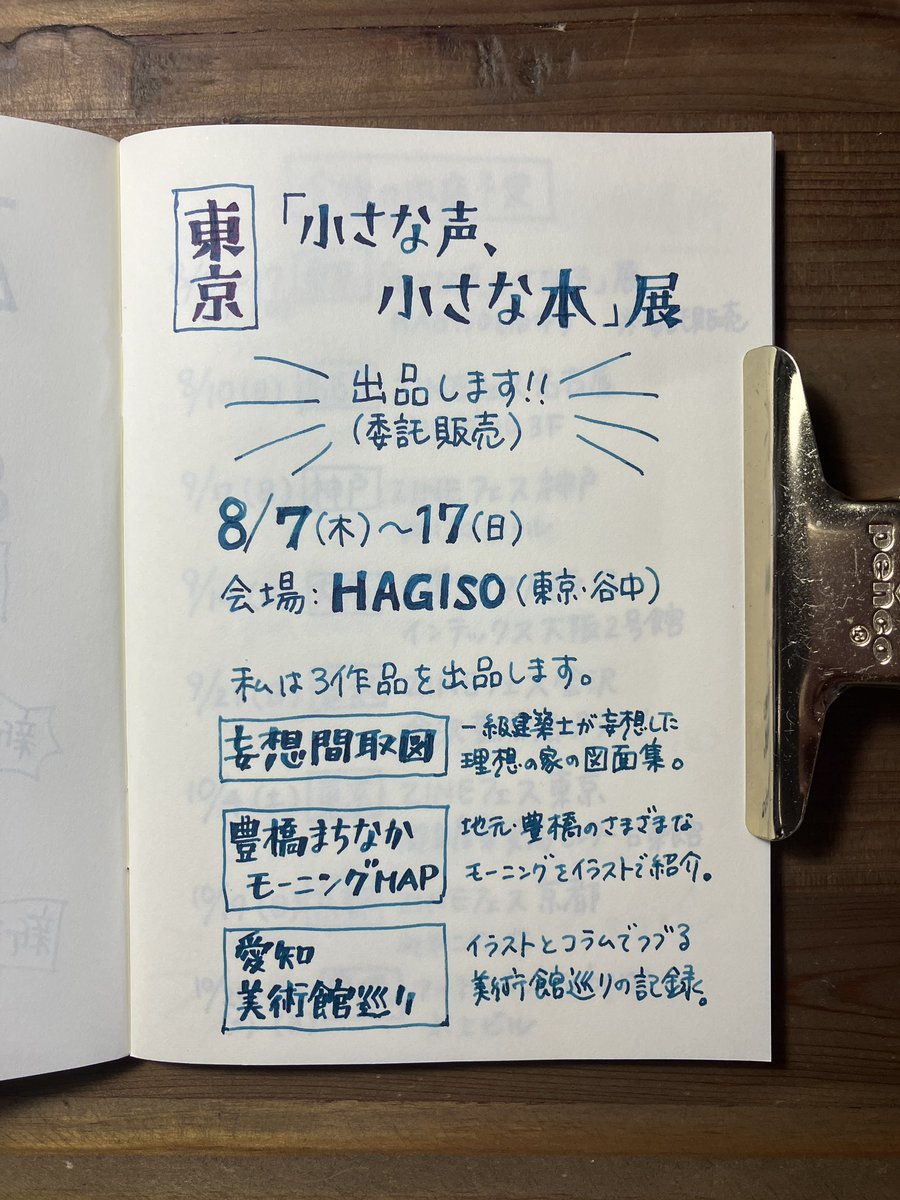 東京
「小さな声、
小さな本」展
出品します!!
(委託販売)
8/7(木)～17(日)
会場:HAGISO(東京・谷中)
私は3作品を出品します。
妄想間取図
一級建築士が妄想した
理想の家の図面集。
豊橋まちなか
モーニングMAP
地元・豊橋のさまざまな
モーニングをイラストで紹介。
愛知
美術館巡り
イラストとコラムでつづる
美術館巡りの記録。
penco®